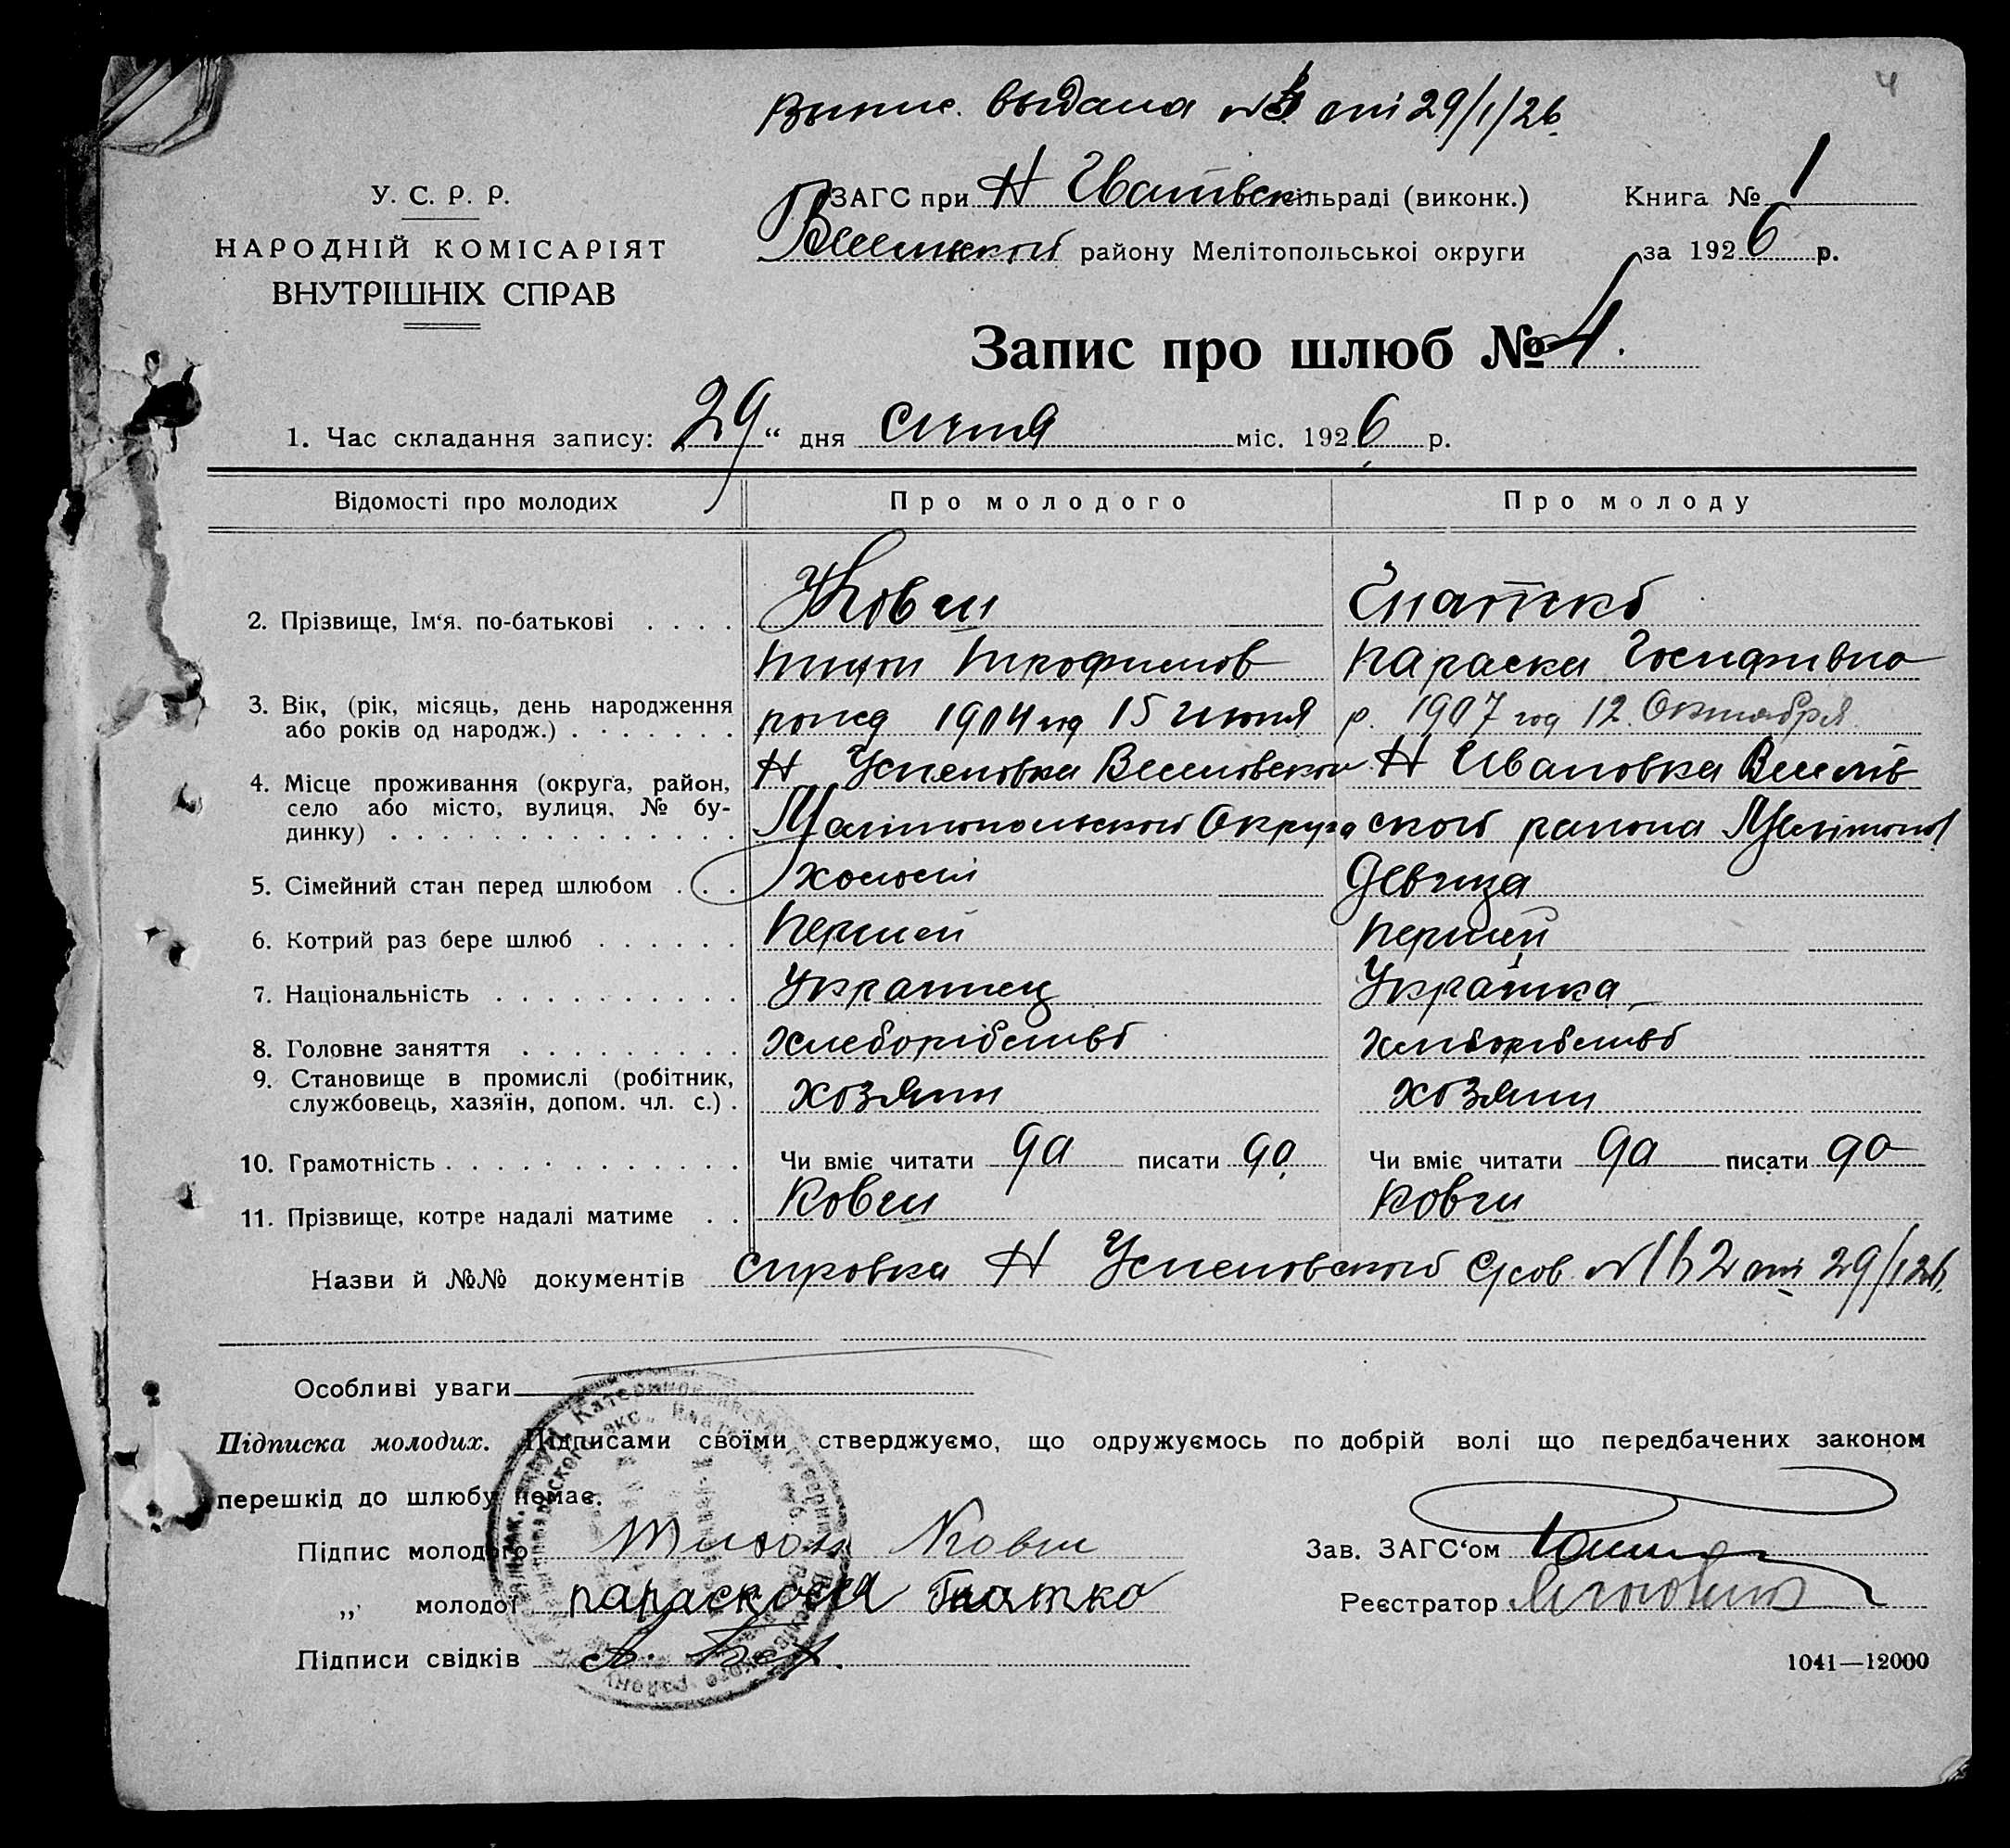 4
Выпис. выдана № от 29/1/26.
У. С. Р. Р.
НАРОДНІЙ КОМІСАРІЯТ
ВНУТРІШНІХ СПРАВ
ЗАГС при Н сільраді (виконк.)
районy Мелітопольської округи
Книга № 1
за 1926 р.
Запис про шлюб № 4.
1. Час складання запису: 29 “ дня січня міс. 1926 р.
Відомості про молодих Про молодого Про молоду
2. Прізвище, Ім‘я. по-батькові . . . . Ковш Гнатко
Трофимов Параска Госифивна
3. Вік, (рік, місяць, день народження
або років од народж.) . . . . . . . 1904 год 15 июня р. 1907 год 12. Октября
4. Місце проживання (округа, район,
село або місто, вулиця, № бу-
динку) . . . . . . . . . . . . . . . .
Н Успеновка Веселовско Н Ивановка Веселів
Мелітопольской Округа ской района Мелітопол
5. Сімейний стан перед шлюбом . . . холост девица
6. Котрий раз бере шлюб . . . . . . Первий Первий
7. Національність . . . . . . . . . . Украинец Українка
8. Головне заняття . . . . . . . . . хлеборобство хлеборобство
9. Становище в промислі (робітник,
службовець, хазяїн, допом. чл. с.) . хозяин хозяин
10. Грамотність . . . . . . . . . . . . Чи вміє читати да писати да Чи вміє читати да писати да
11. Прізвище, котре надалі матиме . . Ковш Ковш
Назви й №№ документів справка Н Успеновской С/сов № 162 от 29/1 26.
Особливі уваги
Підписка молодих. Підписами своїми стверджуємо, що одружуємось по добрій волі що передбачених законом
перешкід до шлюбу немає.
Підпис молодого Тихон Ковш
„ молодої Параскоея Гнатко
Підписи свідків
Зав. ЗАГС‘ом
Реєстратор
1041—12000